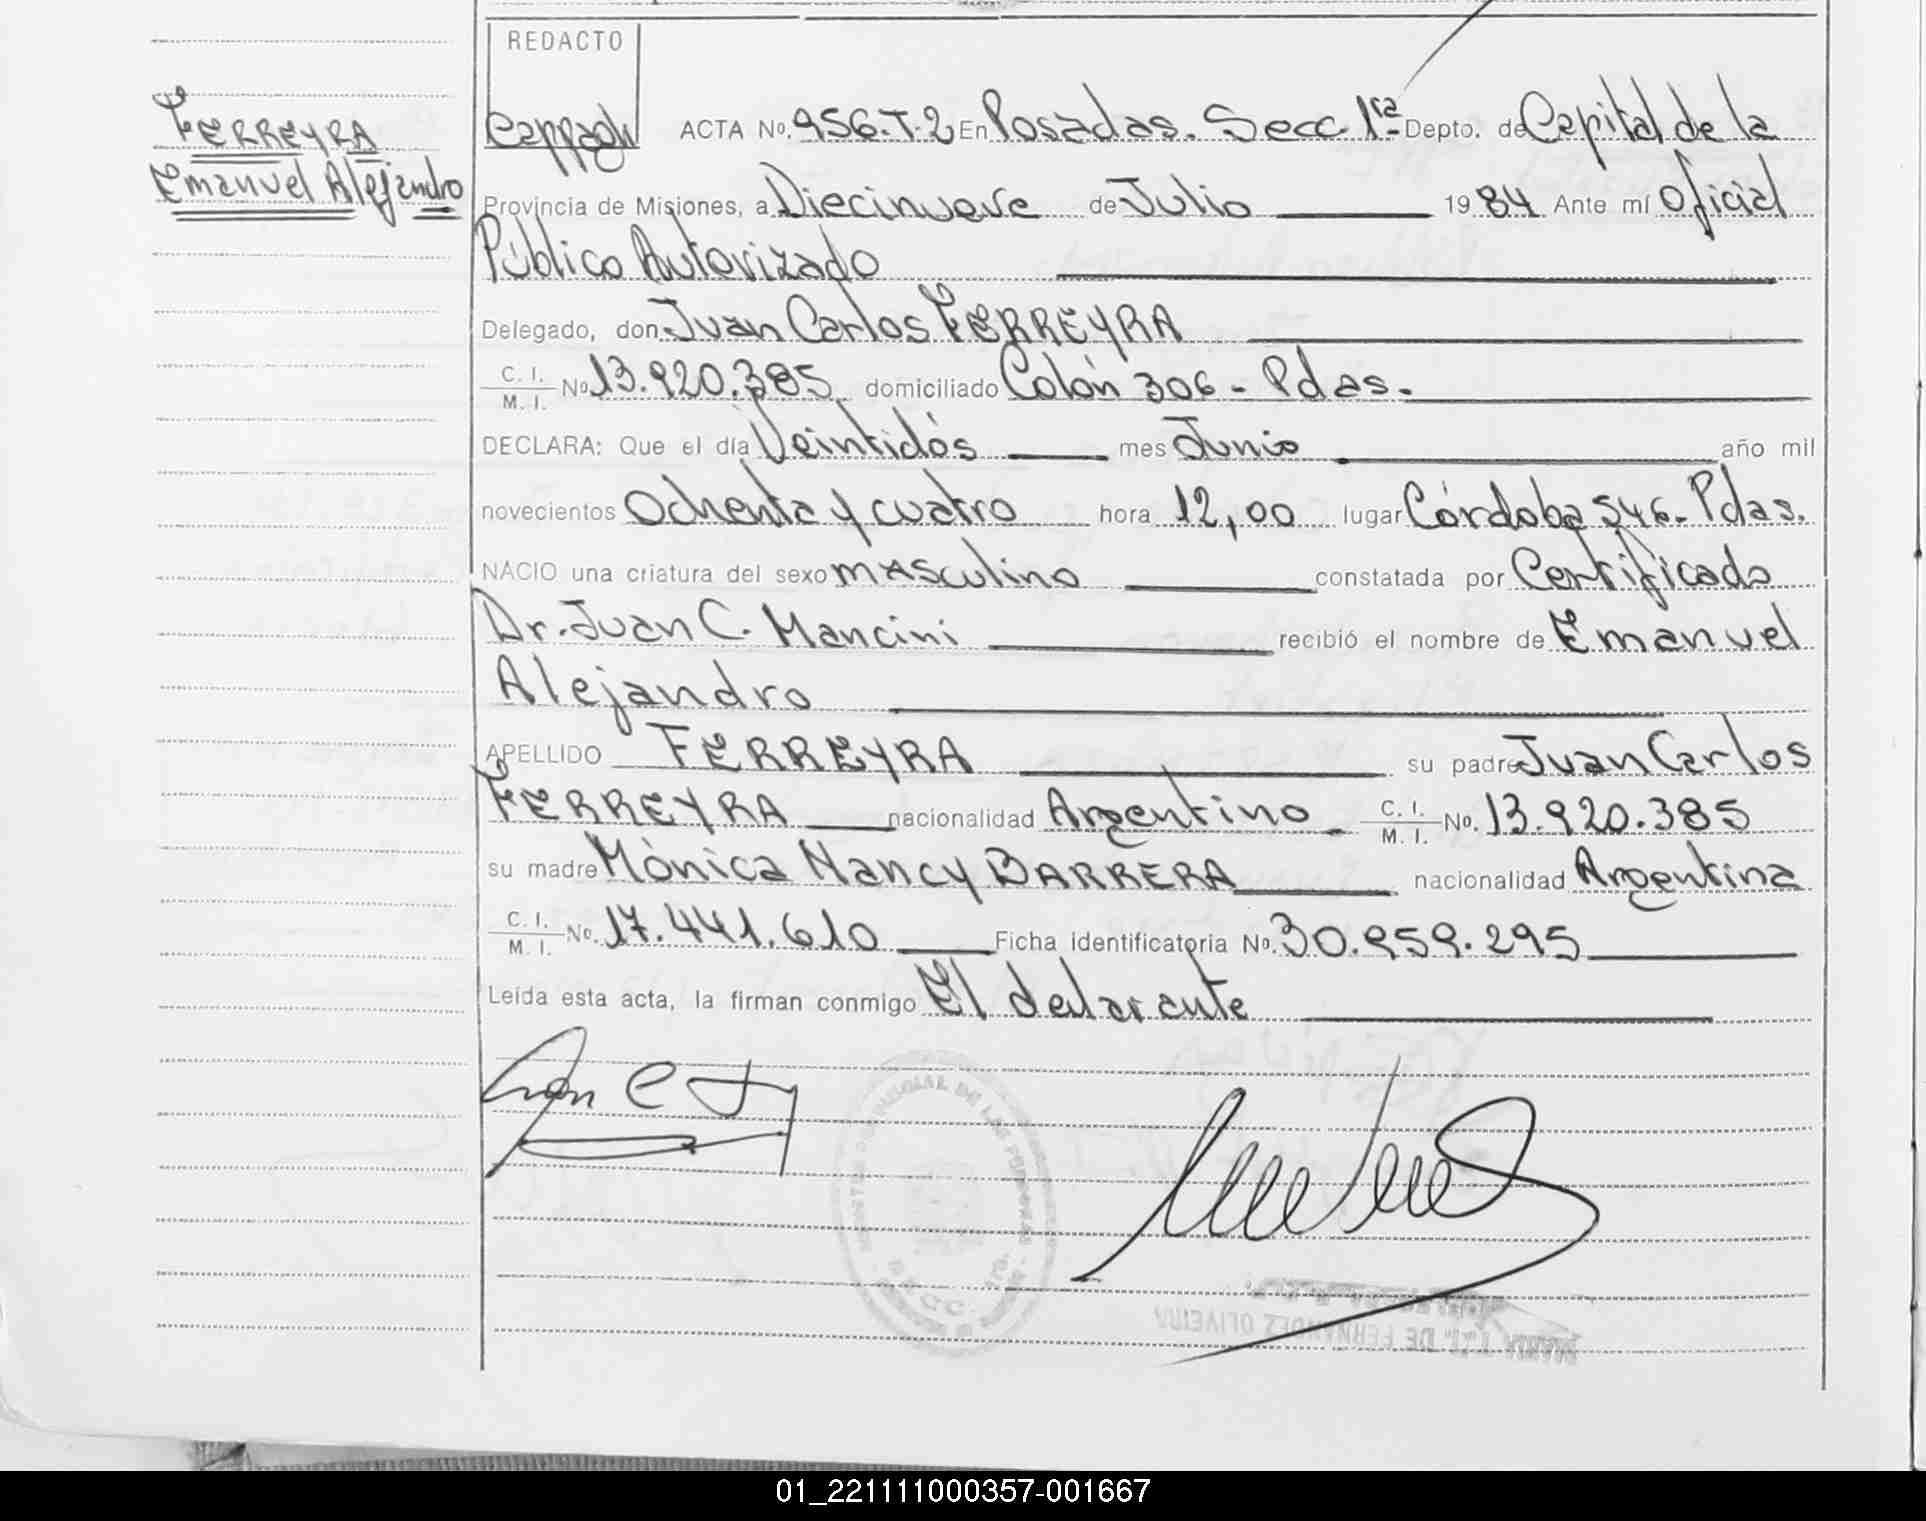 REDACTO
FERREYRA
Emanuel Alejandro
ACTA Nº. 956.T.2 En Posadas. Secc. 1ra. Depto. de Capital de la
Provincia de Misiones, a Diecinueve de Julio 19 84 Ante mí Oficial
Público Autorizado
Delegado, don Juan Carlos FERREYRA
C. I. M. I. Nº 13.920.385 domiciliado Colón 306 - Pdas.
DECLARA: Que el día Veintidós mes Junio año mil
novecientos Ochenta y cuatro hora 12,00 lugar Córdoba 546 - Pdas.
NACIO una criatura del sexo masculino constatada por Certificado
Dr. Juan C. Mancini recibió el nombre de Emanuel
Alejandro
APELLIDO FERREYRA su padre Juan Carlos
FERREYRA nacionalidad Argentino C. I. M. I. Nº. 13.920.385
su madre Mónica Nancy BARRERA nacionalidad Argentina
C. I. M. I. Nº. 17.441.610 Ficha identificatoria Nº. 30.959.295
Leída esta acta, la firman conmigo El delarante
DE FERNANDEZ OLIVEIRA
01_221111000357-001667